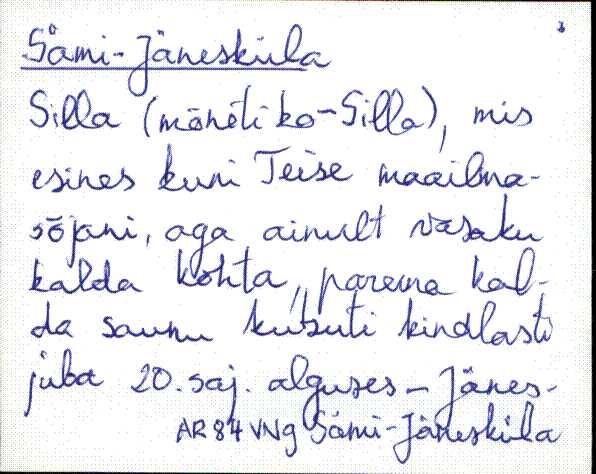 Sámi-Jänesküla
Silla (mõnéti ko-Silla), mis
esines kuni Teise maailma-
sõjani, aga ainult vasaku
kalda kohta, parema kal-
da saunu kutsuti kindlasti
juba 20. saj. alguses - Jänes-
AR 84 VNg Sámi-Jänesküla